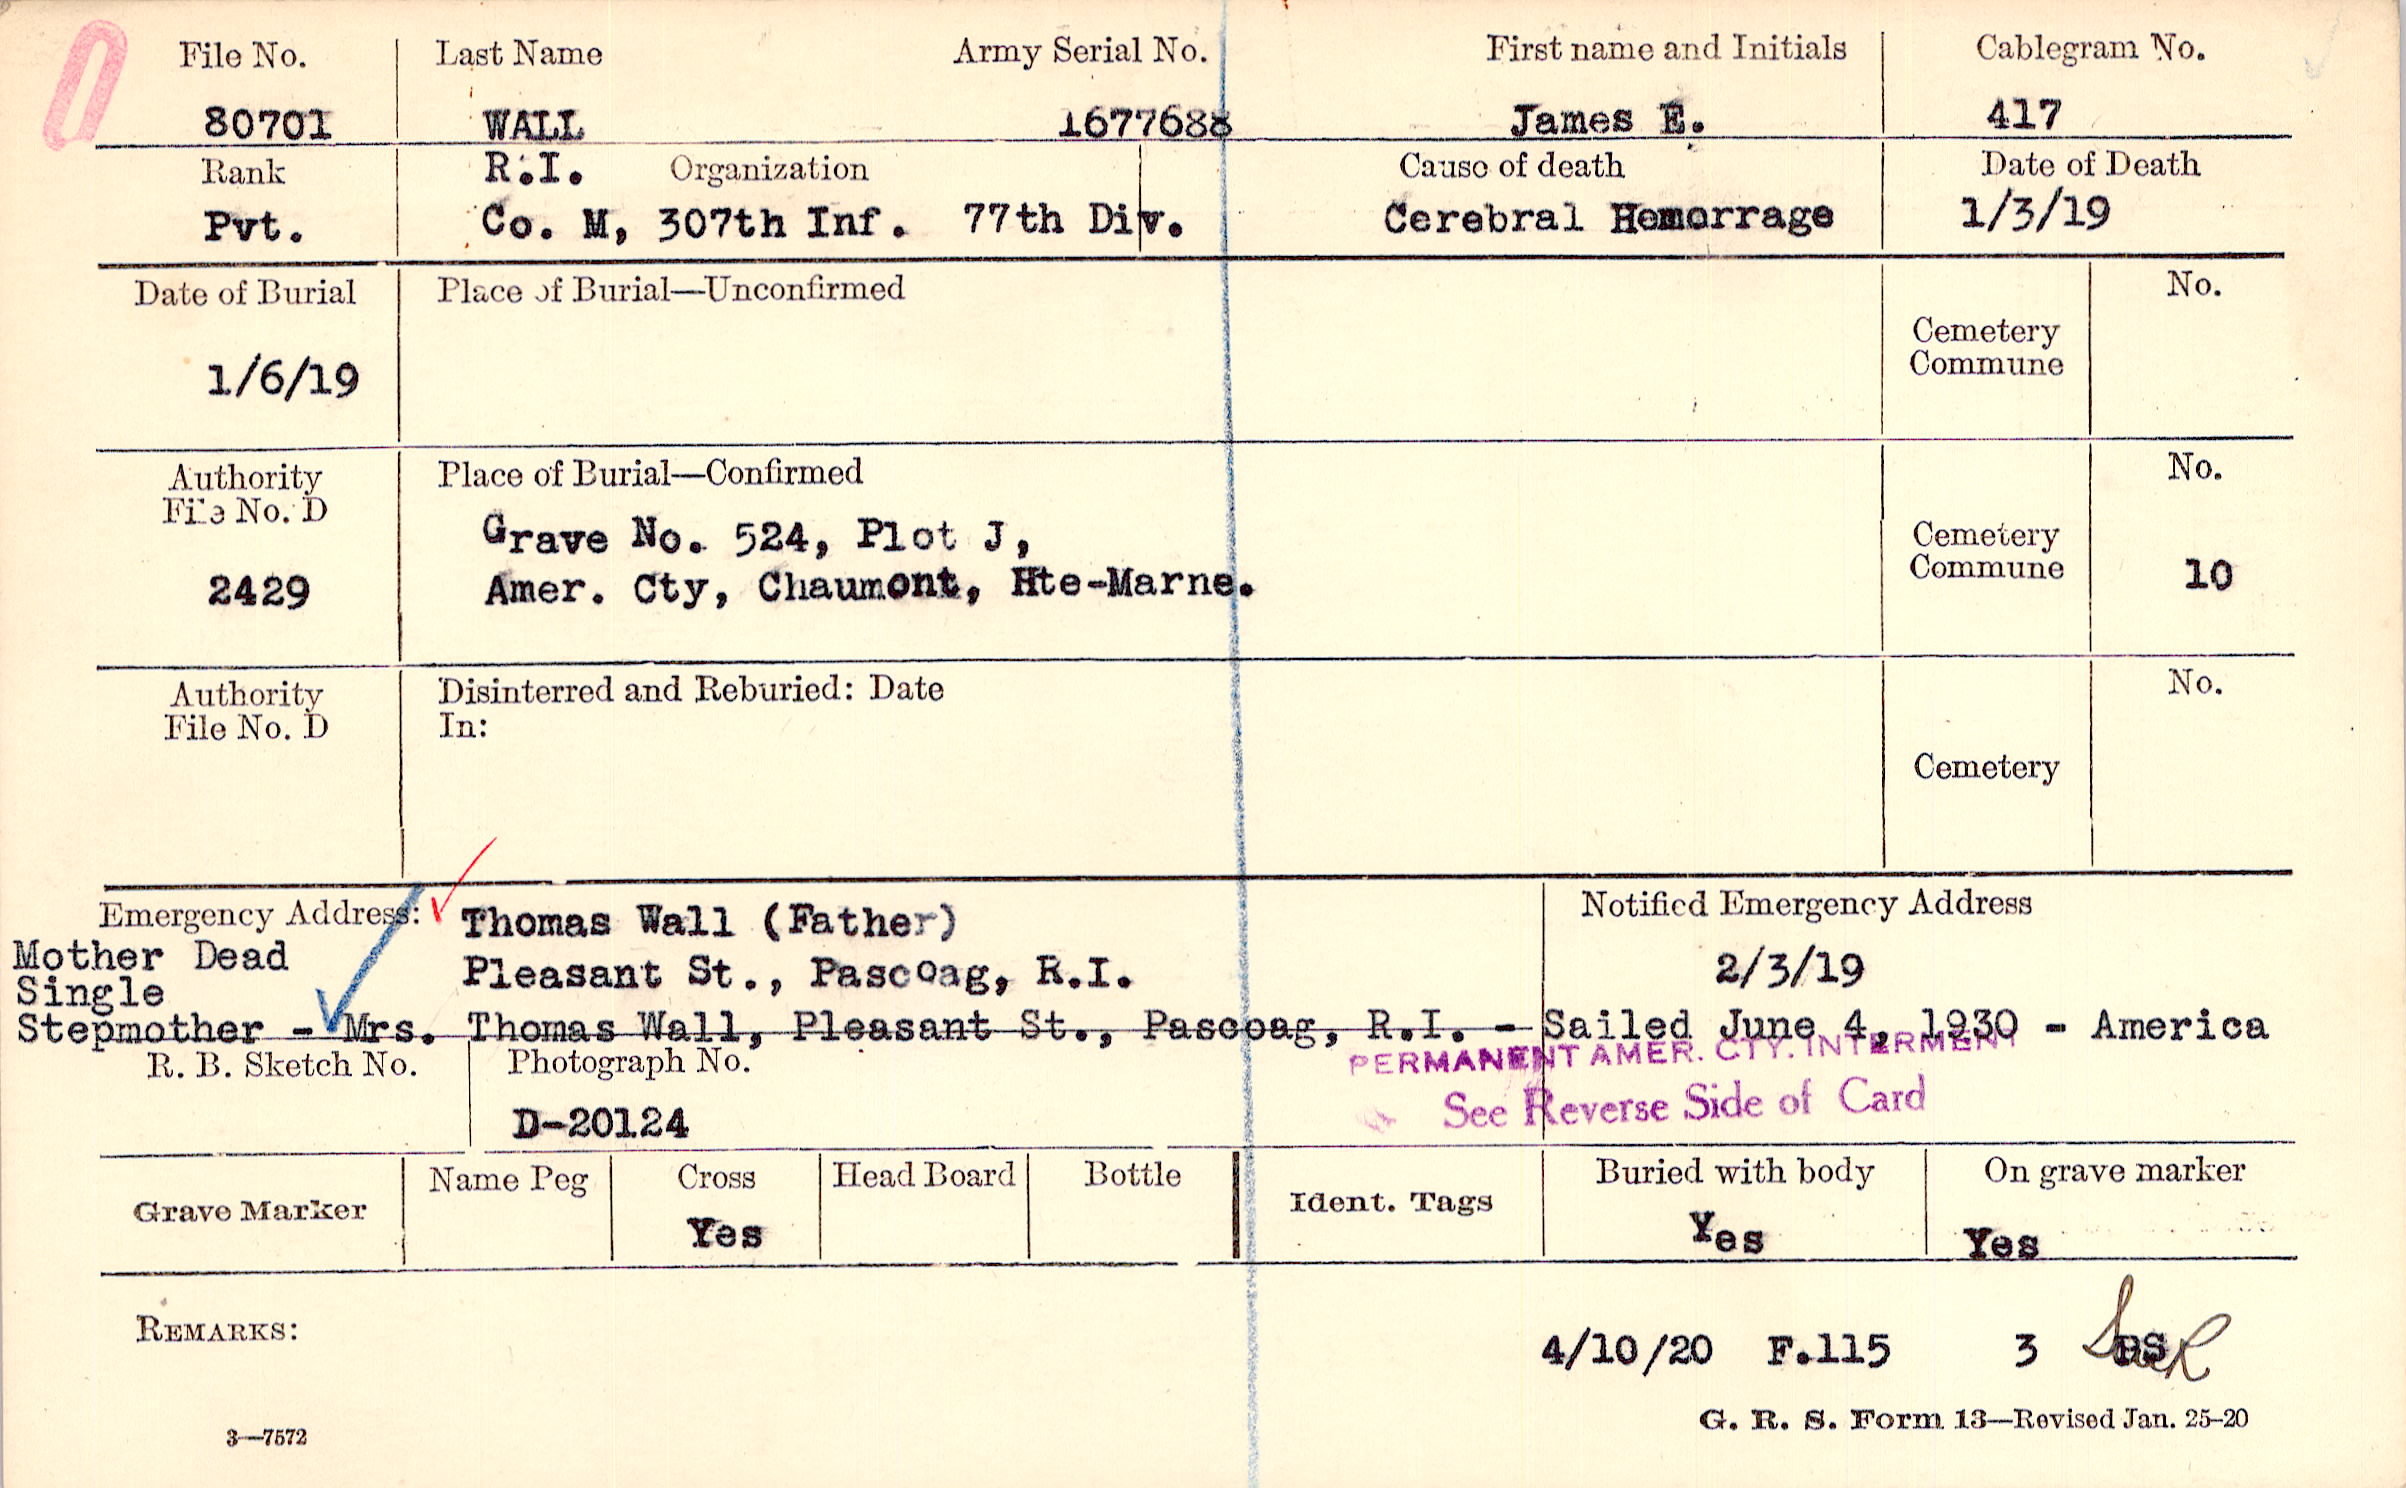 File No. Last Name Army Serial No. First name and Initials Cablegram No.
80701 WALL 1677688 James E. 417
Rank R.I. Organization Cause of death Date of Death
Pvt. Co. M, 307th Inf. 77th Div. Cerebral Hemorrage 1/3/19
Date of Burial Place of Burial—Unconfirmed No.
Cemetery
Commune
1/6/19
Authority Place of Burial—Confirmed No.
File No. D
Grave No. 524, Plot J, Cemetery
2429 Amer. Cty, Chaumont, Hte-Marne. Commune 10
Authority Disinterred and Reburied: Date No.
File No. D In:
Cemetery
Emergency Address: Thomas Wall (Father) Notified Emergency Address
Mother Dead Pleasant St., Pascoag, R.I. 2/3/19
Single
Stepmother - Mrs. Thomas Wall, Pleasant St., Pascoag, R.I. - Sailed June 4, 1930 - America
PERMANENT AMER. CTY. INTERMENT
R. B. Sketch No. Photograph No.
See Reverse Side of Card
D-20124
Grave Marker Name Peg Cross Head Board Bottle Ident. Tags Buried with body On grave marker
Yes Yes Yes
REMARKS:
4/10/20 F.115 3
G. R. S. Form 13—Revised Jan. 25-20
3—7572